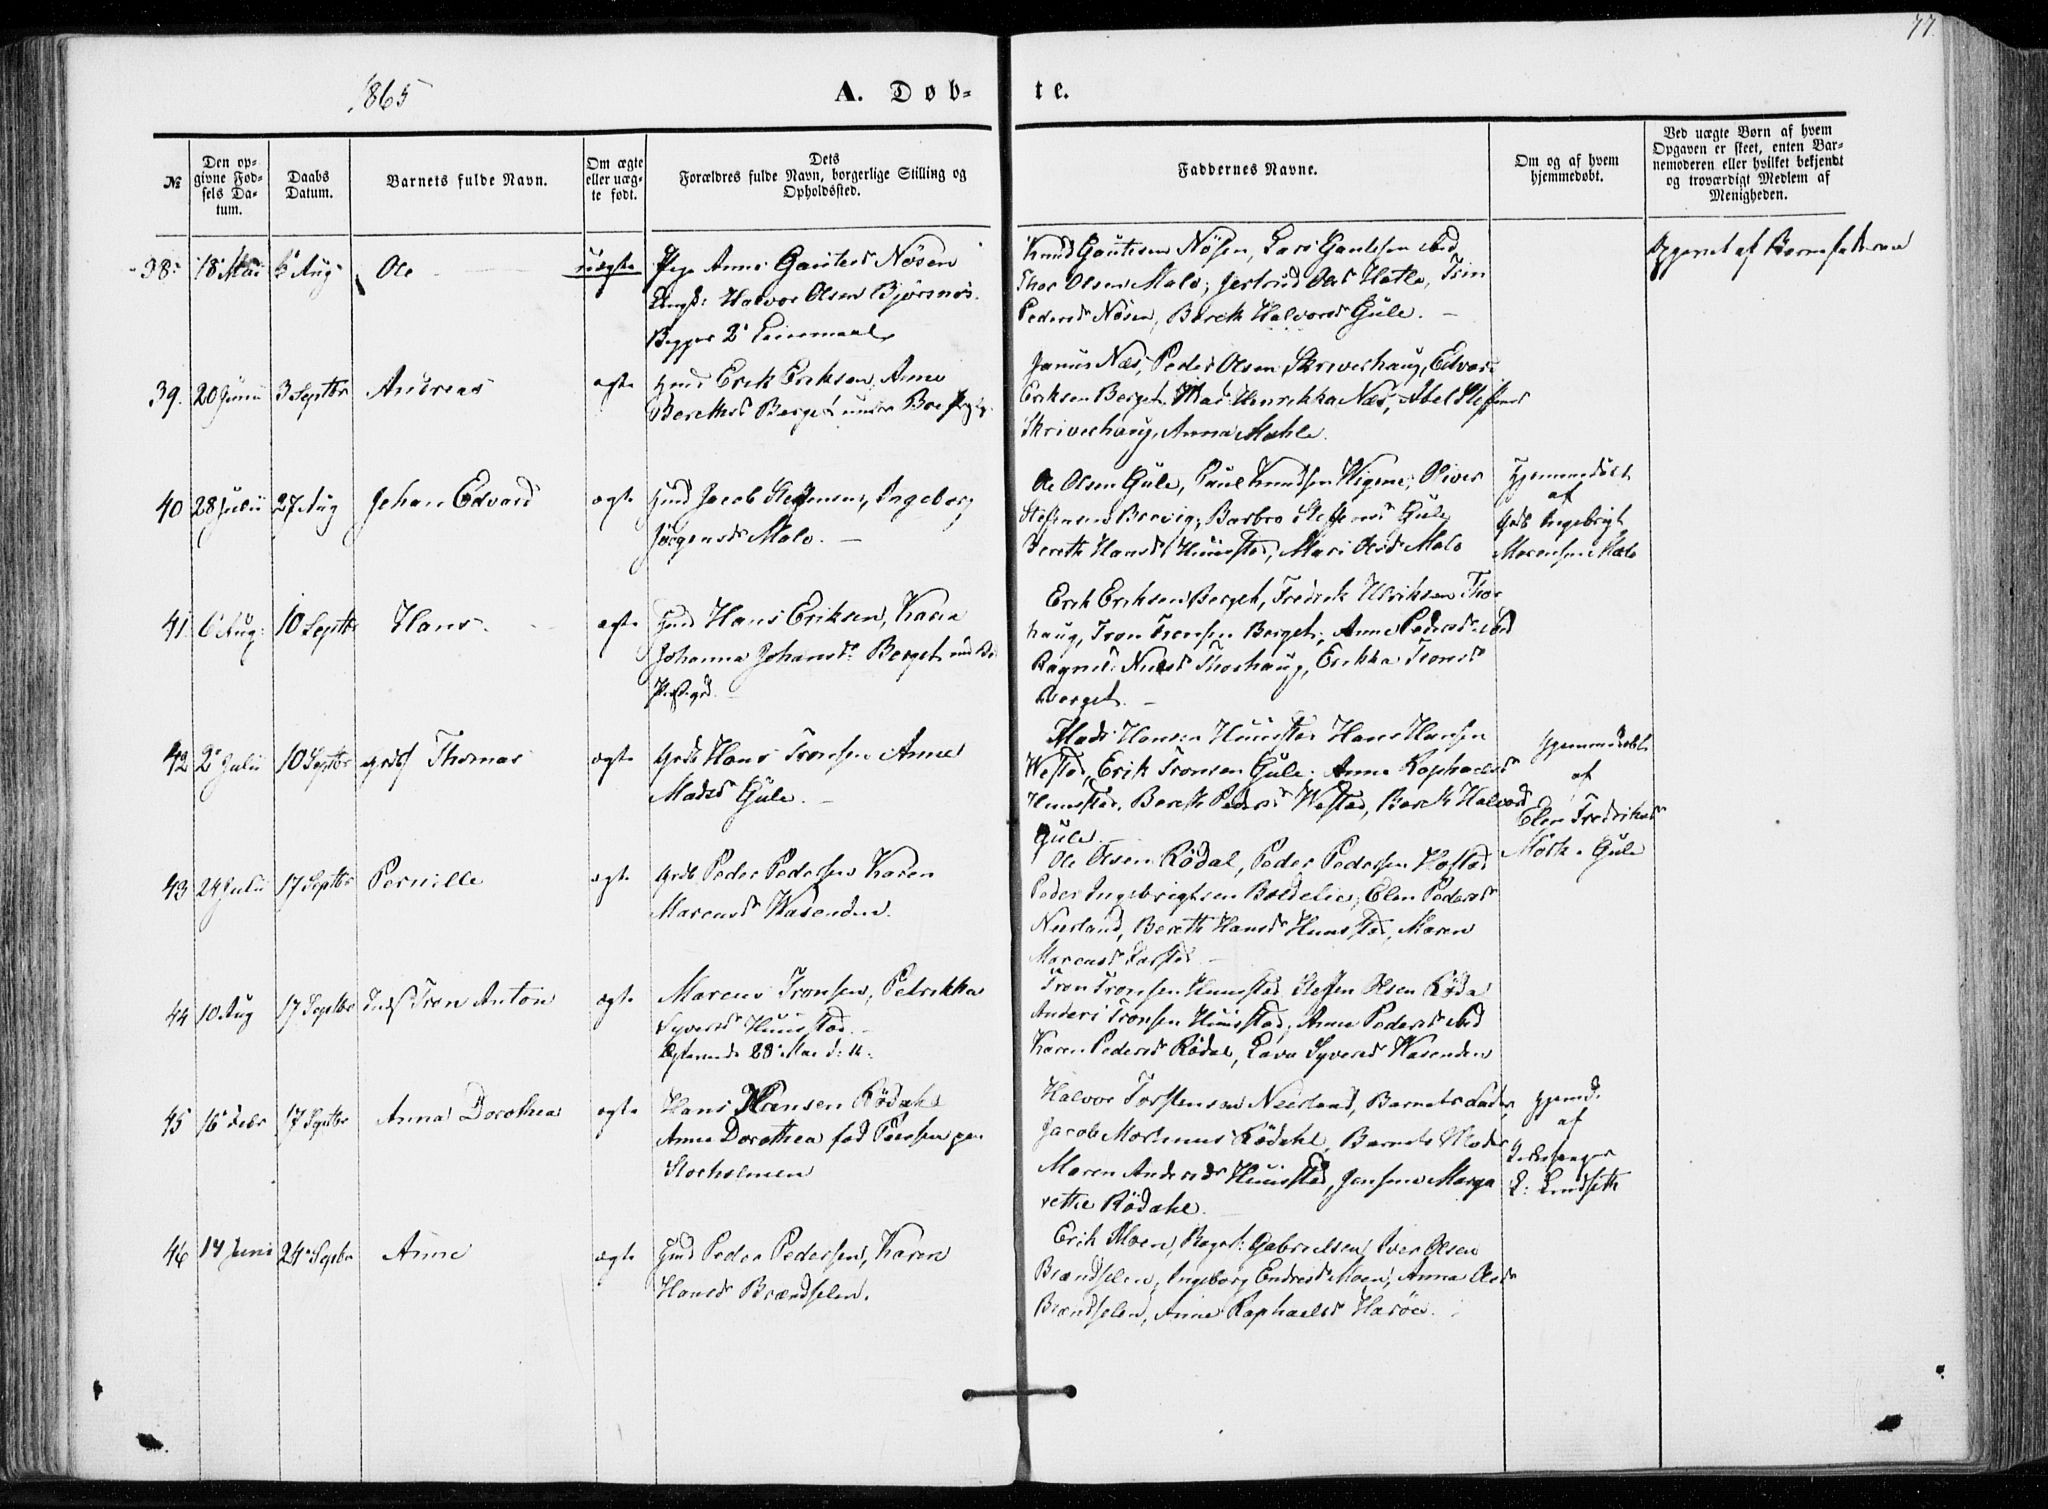 77.
1865
A. Døb-
te.
№
Den op-
givne Fød-
sels Da-
tum.
Daabs
Datum.
Barnets fulde Navn.
Om ægte
eller uæg-
te født.
Dets
Forældres fulde Navn, borgerlige Stilling og
Opholdssted.
Faddernes Navne.
Om og af hvem
hjemmedøbt.
Ved uægte Børn af hvem
Opgaven er skeet, enten Bar-
nemoderen eller hvilket bekjendt
og troværdigt Medlem af
Menigheden.
38 18 Mai 6 Aug Ole uægte Pige Anne Gautesd Nösen
Ungk: Halvor Olsen Bjørsnös.
Begges 2 Leiermaal
Knud Gautesen Nösen, Lars Gautesen ibd
Thor Olsen Malo, Gertrud Olsd Hatle,
Pedersd Nösen, Bereth Halvorsd Gule.
Opgivet af Barnefaderen
39. 20 Juni 3 Septbr Andreas ægte Hmd Erik Eriksen, Anne
Berethsd Berget under Boe
Janus Næs, Peder Olsen Skriverhaug, Edvard
Eriksen Berget, Mad Henrikka Næs, Abel Steffensd
Skriverhaug, Anna Mahle.
40 28 Julii 27 Aug Johan Edvard ægte Hmd Jacob Steffensen, Ingeborg
Jörgensd Malo.
Ole Olsen Gule, Paul Knudsen Wigene, Oliver
Steffensen Brevig, Barbro Steffensd Gule
Bereth Hansd Huustad, Mari Olsd Malo
Hjemmedöbt
af
Grdb Ingebrigt
Morensen Malo
41 6 Aug: 10 Septbr Hans ægte Hmd Hans Eriksen, Karen
Johanna Johansd Berget und Bo
Erik Eriksen Berget, Fredrik Ulriksen Thor
haug, Tron Tronsen Berget, Anne Pedersd ibd
Ragnid Nilsd Thorhaug, Erikka Tronsd
Berget.
42 2 Julii 10 Septbr Thomas ægte Grdb Hans Tronsen Anne
Madsd Gule.
Mads Hansen Huustad Hans Hansen
Westad, Erik Tronsen Gule, Anne Raphaelsd
Huustad, Bereth Pedersd Westad, Bereth Halvorsd
Gule.
Hjemmedöbt
af
Elen Fredriksd
Mörk Gule
43 24 Julii 17 Septbr Pernille ægte Grdb Peder Pedersen Karen
Marensd Wasenden.
Ole Olsen Rödal, Peder Pedersen Hostad
Peder Ingebrigtsen Boldelie, Elen Pedersd
Neerland, Bereth Hansd Huustad, Maren
Marensd
44 10 Aug 17 Septbr Tron Anton ægte Marcus Tronsen, Petrikka
Syversd Huustad.
28 Mai d: A:
Tron Tronsen Huustad, Steffen Olsen Röda
Anders Tronsen Huustad, Anne Pedersd ibd
Karen Pedersd Rödal, Lava Syversd Wasenden
45 16 Febr 17 Septbr Anna Dorothea ægte Hans Hansen Rödahl
Anne Dorothea född
Storholmen
Halvor Torstensen Neerland, Barnets Fader,
Jacob Mortinus Rödahl, Barnets Moder
Maren Andersd Huustad, Jensine Marga
rethe Rödahl.
Hjemd.
af
Kirkesanger
L: Lindseth
46 14 Juni 24 Septbr Anne ægte Hmd Peder Pedersen, Karen
Hansd Brændselen.
Erik Moen, Gabrielsen, Iver Olsen
Brændselen, Ingeborg Endresd Moen, Anna Olsd
Brændselen, Anne Raphaelsd Haröe.